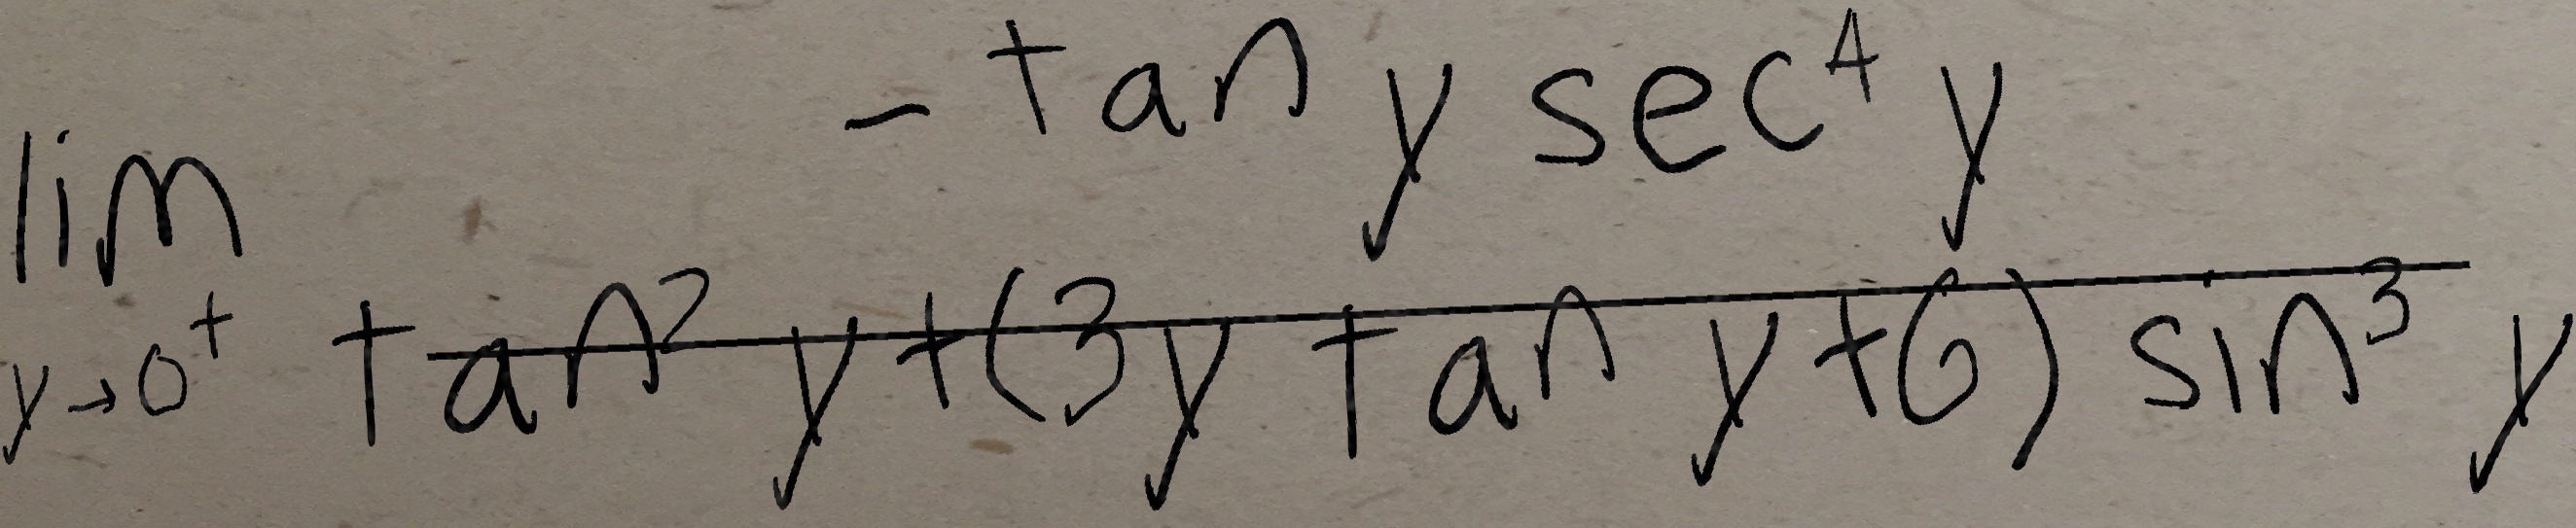 lim y→0⁺ (- tan y sec⁴ y) / (tan² y + (3y tan y + 6) sin³ y)